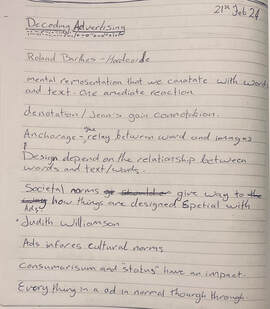 21st Feb 24
Decoding Advertising
Roland Barthes -
mental representation that we conatate with word
and text. One amediate reaction
denotation / Jean > gain Connotation.
Anchorage - relay between word and
Design depend on the relationship between
words and text/words.
Societal norms give way to the
how things are designed Special with
Ads
Judith Williamson
Ads infores cultural norms
Consumarisum and "status" have an impact.
Every thing in a ad in normal through through